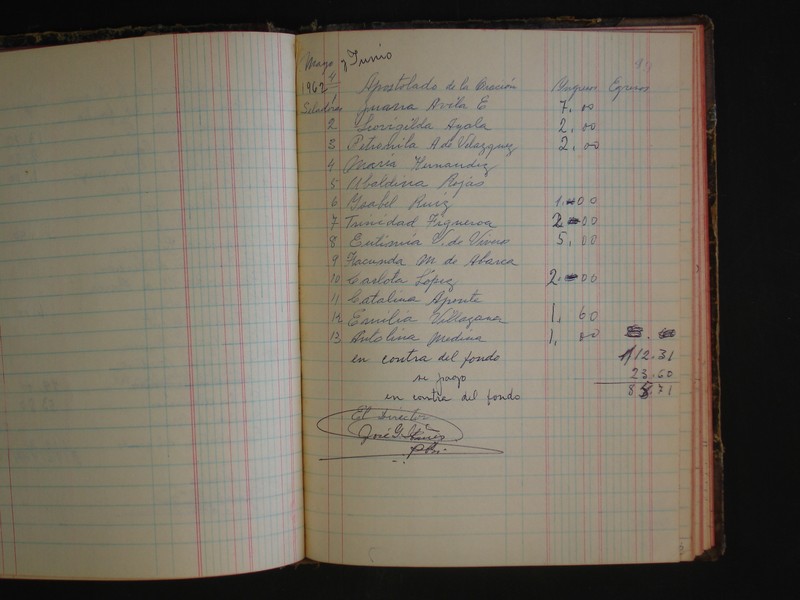 Mayo y Junio
1962 Apostolado de la Oración Ingresos Egresos
Seladoras 1 Juana Avila E 7.00
2 Leovigilda Ayala 2.00
3 Petronila A de Velazquez 2.00
4 Maria Hernandez
5 Ubaldina Rojas
6 Ysabel Ruiz 1.00
7 Trinidad Figueroa 2.00
8 Eutimia V. de Vivero 5.00
9 Facunda M de Abarca
10 Carlota López 2.00
11 Catalina Aponte
12 Emilia Villazana 1,60
13 Antolina Medina 1,00
en contra del fondo 112.31
se pago 23.60
en contra del fondo 88.71
El Director
José G.
Pbr.